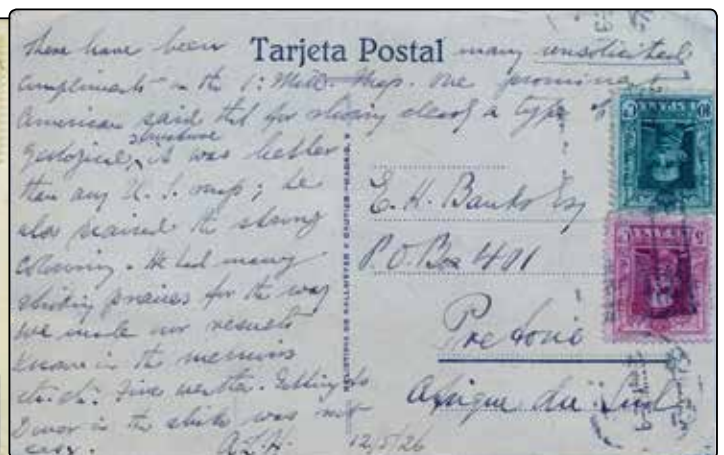 there have been Tarjeta Postal many unsolicited
compliments on the 1: Mill. Map. One prominent
American said that for showing clearly a type of
geological structure it was better
than any U.S. map; he
also praised the strong
colouring. He had many
striking praises for the way
we made our results
known in the memoirs
etc. etc. Fine weather. Getting to
Dover in the strike was not
easy. A.L.H. 12/5/26
E. H. Banks Esq
P.O. Box 401
Pretoria
Afrique du Sud